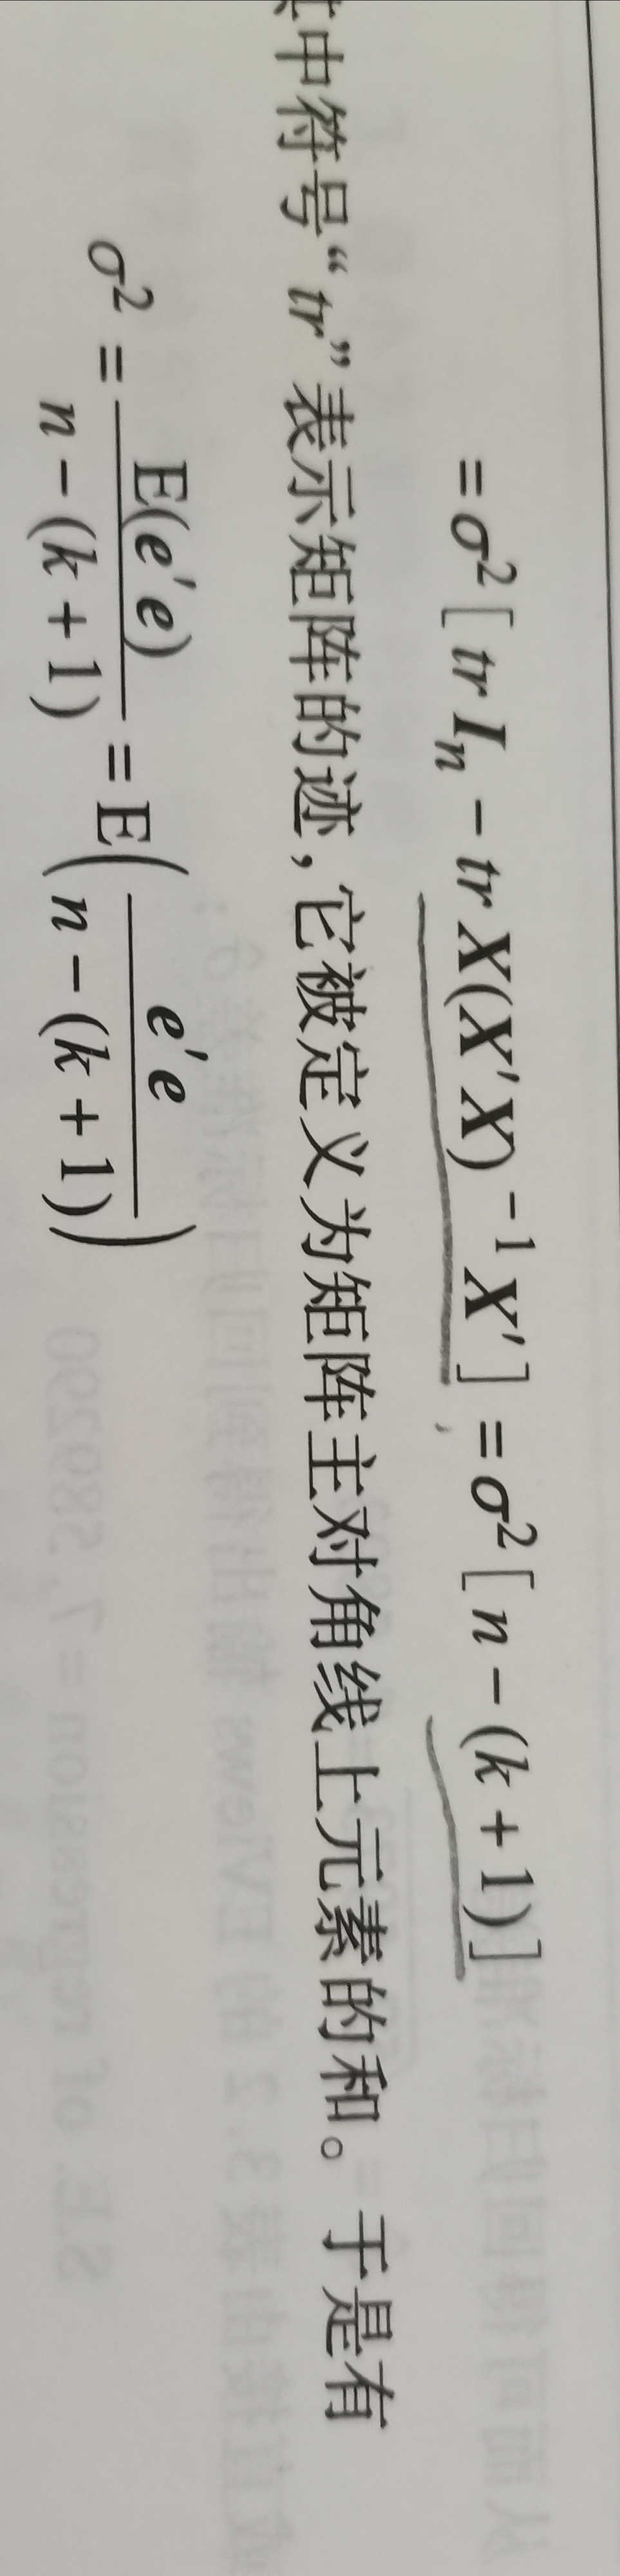 = σ² [ tr Iₙ − tr X(X′X)⁻¹X′ ] = σ² [ n − (k + 1) ]
中符号“tr”表示矩阵的迹，它被定义为矩阵主对角线上元素的和。于是有
σ² = E(e′e) / (n − (k + 1)) = E( e′e / (n − (k + 1)) )